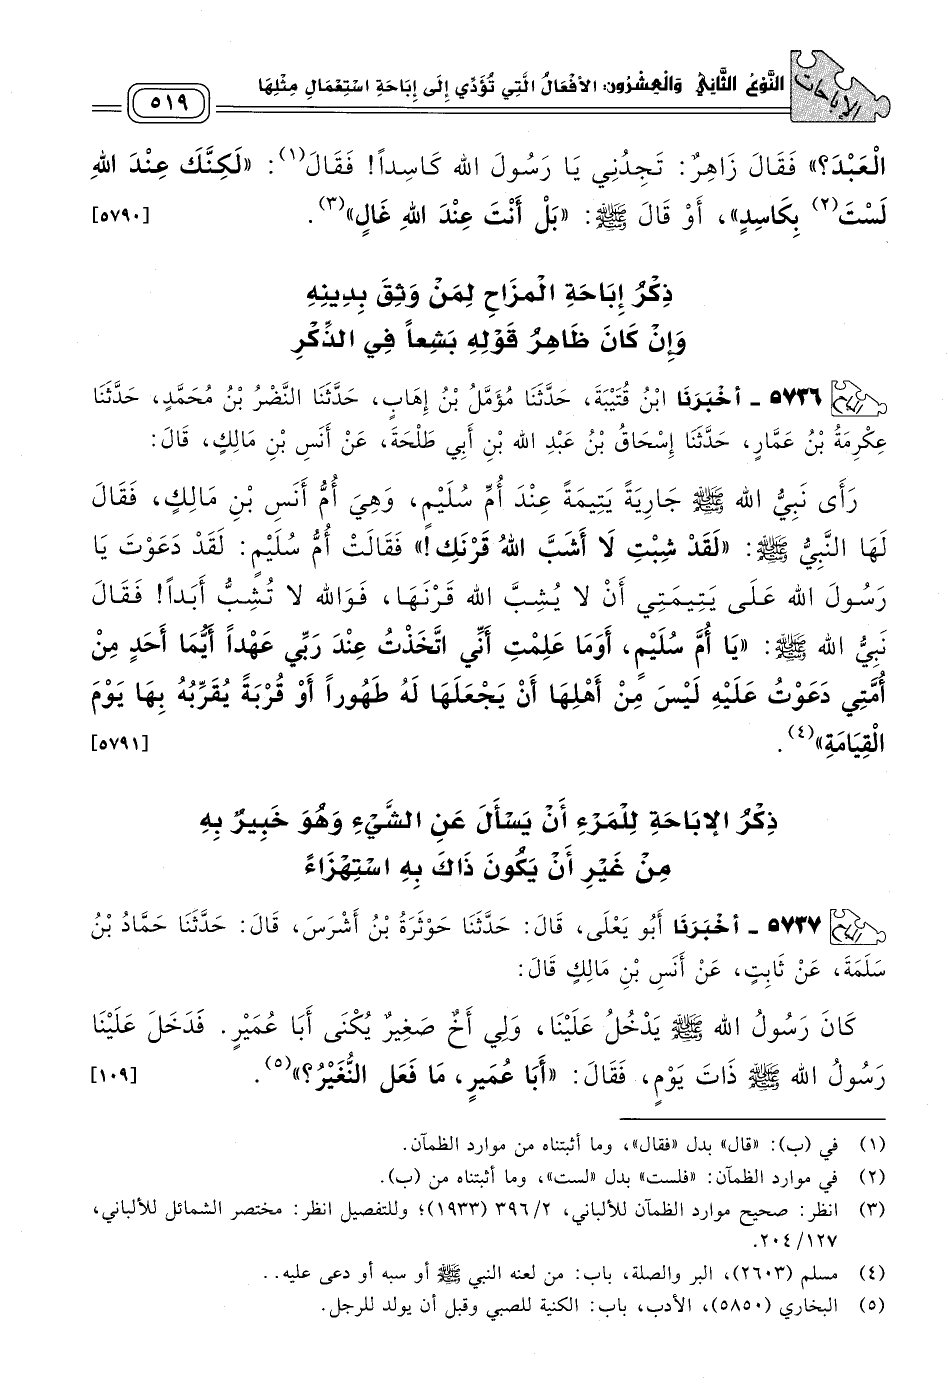 الإباحات
النَّوْعُ الثَّانِي وَالْعِشْرُون: الأَفْعَالُ الَّتِي تُؤَدِّي إِلَى إِبَاحَةِ اسْتِعْمَالِ مِثْلِهَا
٥١٩
الْعَبْدَ؟» فَقَالَ زَاهِرٌ: تَجِدُنِي يَا رَسُولَ الله كَاسِداً! فَقَالَ(١): «لَكِنَّكَ عِنْدَ اللهِ
لَسْتَ(٢) بِكَاسِدٍ»، أَوْ قَالَ ﷺ: «بَلْ أَنْتَ عِنْدَ اللهِ غَالٍ»(٣). [٥٧٩٠]
ذِكْرُ إِبَاحَةِ الْمِزَاحِ لِمَنْ وَثِقَ بِدِينِهِ
وَإِنْ كَانَ ظَاهِرُ قَوْلِهِ بَشِعاً فِي الذِّكْرِ
٥٧٣٦ - أخْبَرَنَا ابْنُ قُتَيْبَةَ، حَدَّثَنَا مُؤَمَّلُ بْنُ إِهَابٍ، حَدَّثَنَا النَّضْرُ بْنُ مُحَمَّدٍ، حَدَّثَنَا
عِكْرِمَةُ بْنُ عَمَّارٍ، حَدَّثَنَا إِسْحَاقُ بْنُ عَبْدِ الله بْنِ أَبِي طَلْحَةَ، عَنْ أَنَسِ بْنِ مَالِكٍ، قَالَ:
رَأَى نَبِيُّ الله ﷺ جَارِيَةً يَتِيمَةً عِنْدَ أُمِّ سُلَيْمٍ، وَهِيَ أُمُّ أَنَسِ بْنِ مَالِكٍ، فَقَالَ
لَهَا النَّبِيُّ ﷺ: «لَقَدْ شِبْتِ لَا أَشَبَّ اللهُ قَرْنَكِ!» فَقَالَتْ أُمُّ سُلَيْمٍ: لَقَدْ دَعَوْتَ يَا
رَسُولَ الله عَلَى يَتِيمَتِي أَنْ لا يُشِبَّ الله قَرْنَهَا، فَوَالله لا تُشِبُّ أَبَداً! فَقَالَ
نَبِيُّ الله ﷺ: «يَا أُمَّ سُلَيْمٍ، أَوَمَا عَلِمْتِ أَنِّي اتَّخَذْتُ عِنْدَ رَبِّي عَهْداً أَيُّمَا أَحَدٍ مِنْ
أُمَّتِي دَعَوْتُ عَلَيْهِ لَيْسَ مِنْ أَهْلِهَا أَنْ يَجْعَلَهَا لَهُ طَهُوراً أَوْ قُرْبَةً يُقَرِّبُهُ بِهَا يَوْمَ
الْقِيَامَةِ»(٤). [٥٧٩١]
ذِكْرُ الإبَاحَةِ لِلْمَرْءِ أَنْ يَسْأَلَ عَنِ الشَّيْءِ وَهُوَ خَبِيرٌ بِهِ
مِنْ غَيْرِ أَنْ يَكُونَ ذَاكَ بِهِ اسْتِهْزَاءً
٥٧٣٧ - أخْبَرَنَا أَبُو يَعْلَى، قَالَ: حَدَّثَنَا حَوْثَرَةُ بْنُ أَشْرَسَ، قَالَ: حَدَّثَنَا حَمَّادُ بْنُ
سَلَمَةَ، عَنْ ثَابِتٍ، عَنْ أَنَسِ بْنِ مَالِكٍ قَالَ:
كَانَ رَسُولُ الله ﷺ يَدْخُلُ عَلَيْنَا، وَلِي أَخٌ صَغِيرٌ يُكْنَى أَبَا عُمَيْرٍ. فَدَخَلَ عَلَيْنَا
رَسُولُ الله ﷺ ذَاتَ يَوْمٍ، فَقَالَ: «أَبَا عُمَيرٍ، مَا فَعَل النُّغَيْرُ؟»(٥). [١٠٩]
(١) في (ب): «قال» بدل «فقال»، وما أثبتناه من موارد الظمآن.
(٢) في موارد الظمآن: «فلست» بدل «لست»، وما أثبتناه من (ب).
(٣) انظر: صحيح موارد الظمآن للألباني، ٣٩٦/٢ (١٩٣٣)؛ وللتفصيل انظر: مختصر الشمائل للألباني،
٢٠٤/١٢٧.
(٤) مسلم (٢٦٠٣)، البر والصلة، باب: من لعنه النبي ﷺ أو سبه أو دعى عليه..
(٥) البخاري (٥٨٥٠)، الأدب، باب: الكنية للصبي وقبل أن يولد للرجل.